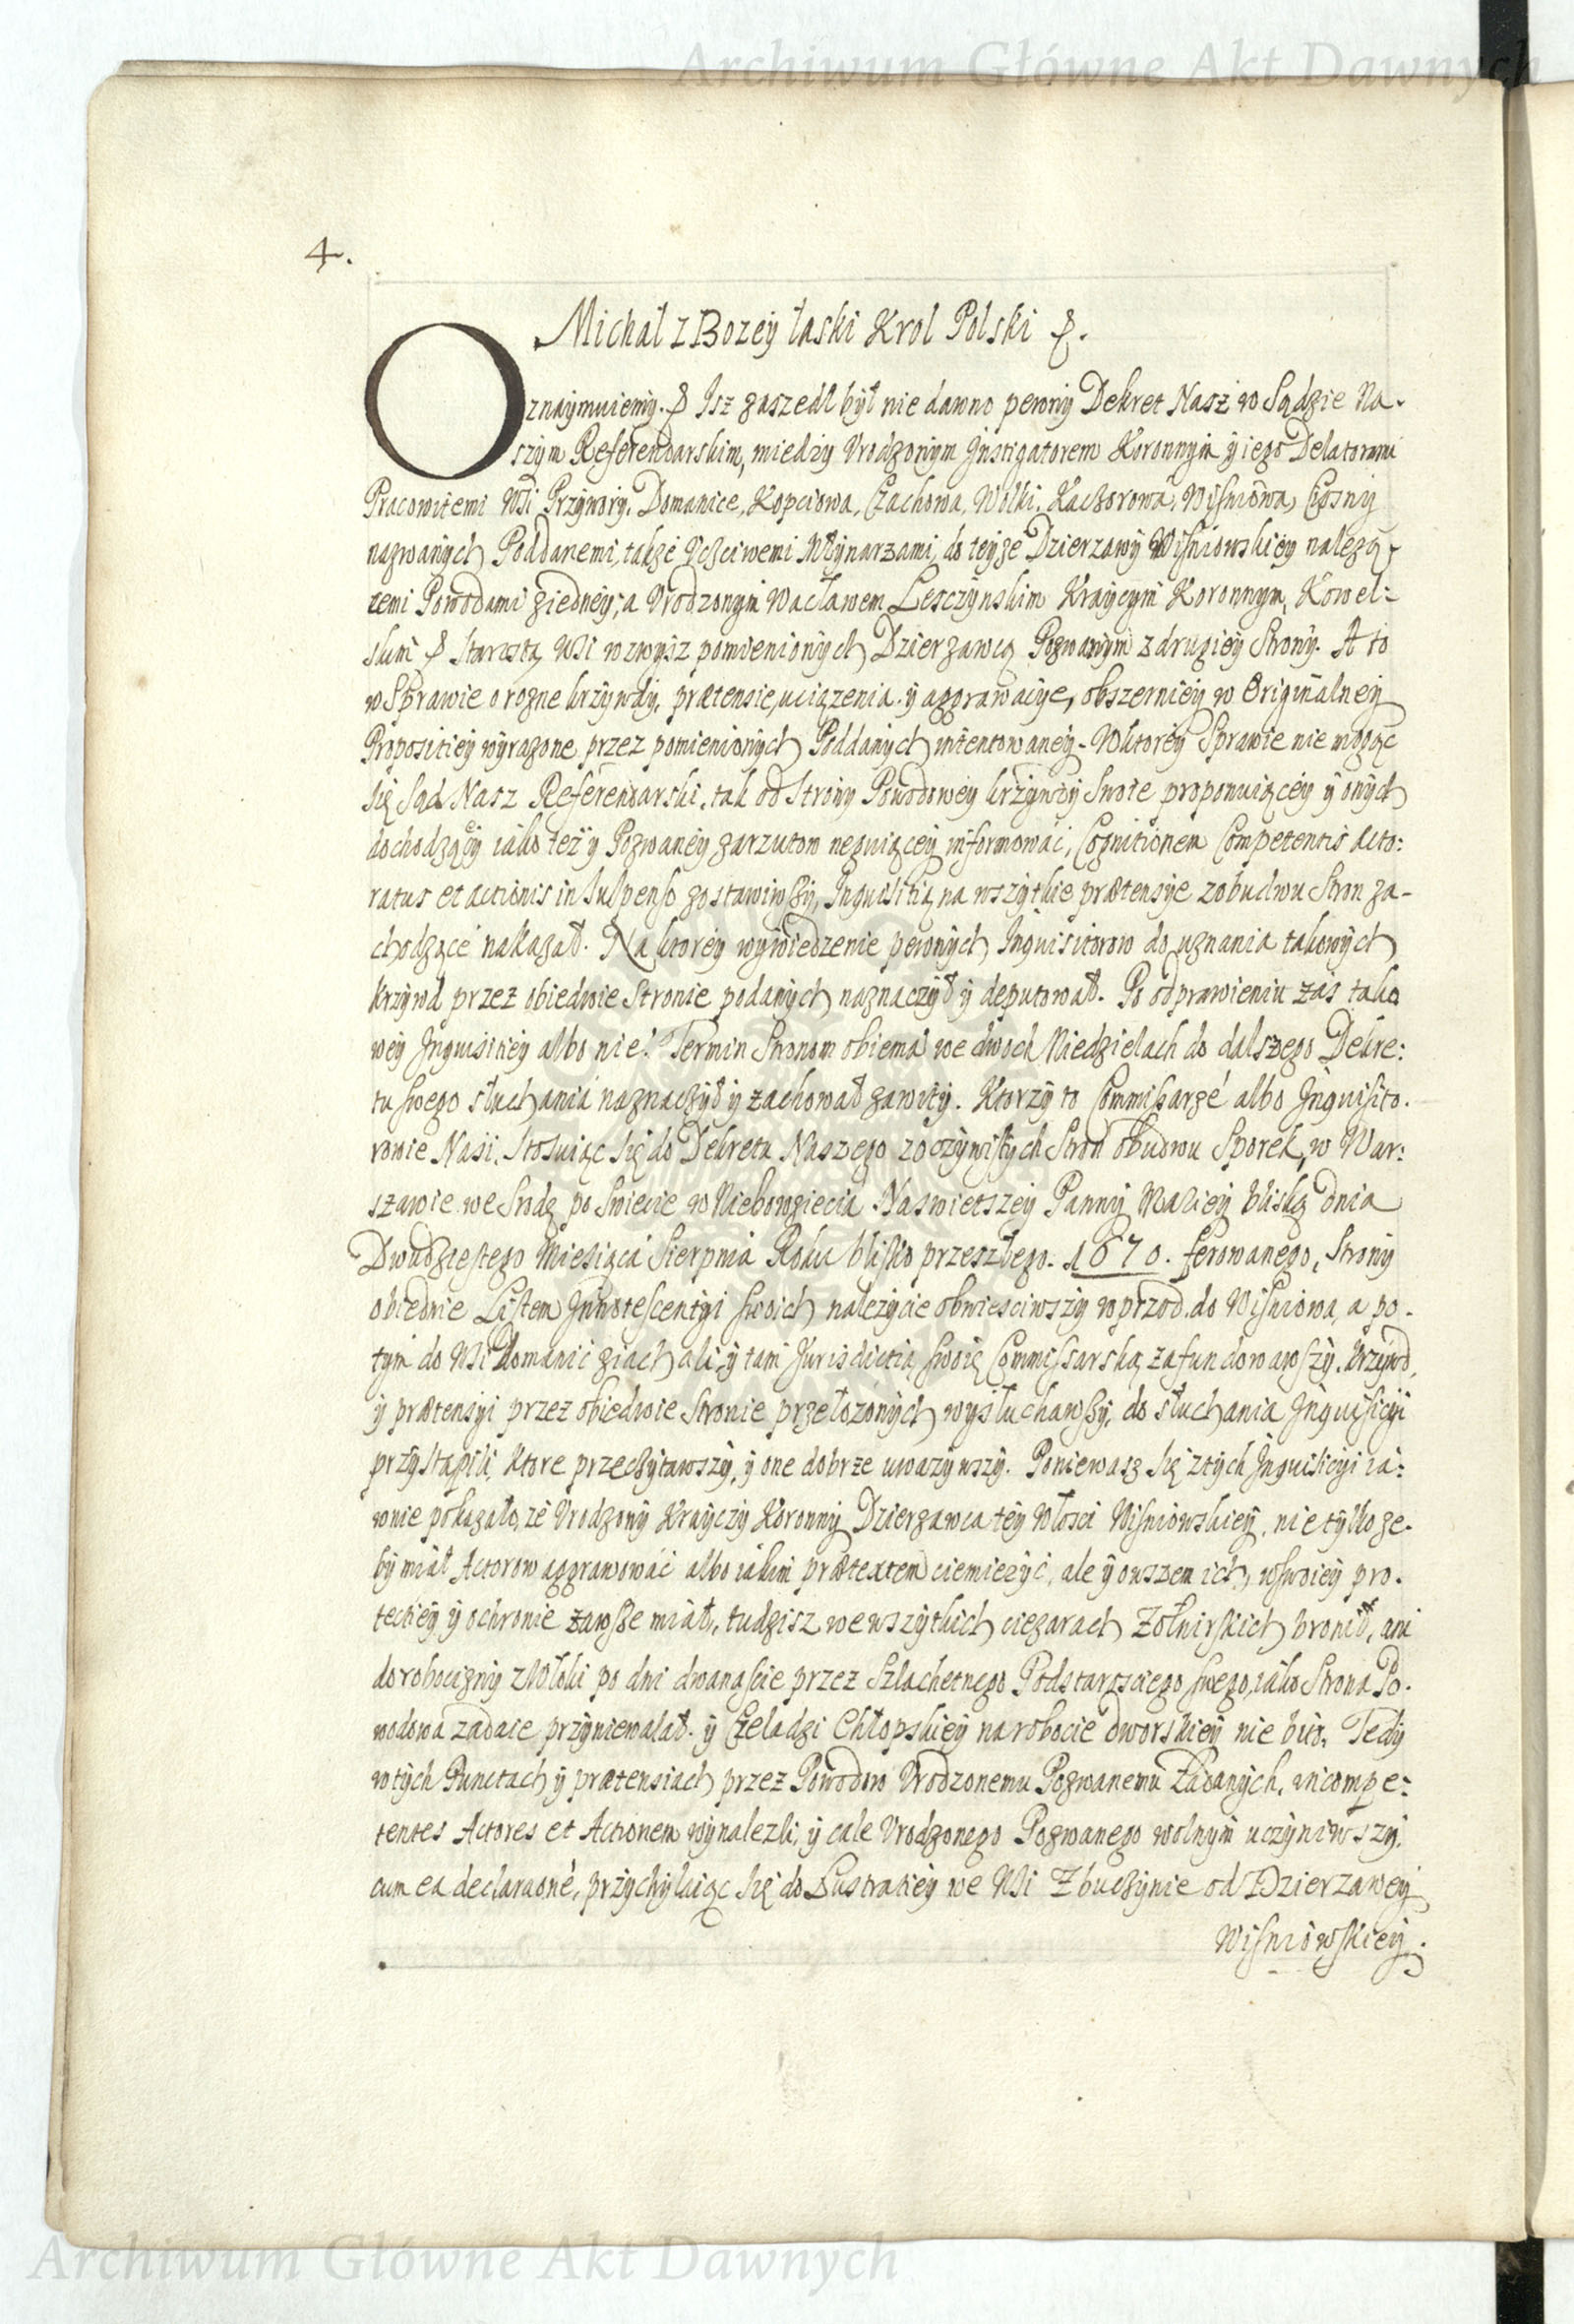 Archiwum Główne Akt Dawnych
4.
Michał z Bozey łaski Krol Polski &.
Oznaÿmuiemÿ. & Isz zaszedł bÿł nie dawno pewnÿ Dekret Nasz w Sądzie Na-
szÿm Referendarskim, miedzÿ Vrodzonÿm Instigatorem Koronnÿm ÿ iego Delatorami
Pracowitemi Wsi Przÿworÿ, Domanice, Kopciowa, Czachowa, Wolki, Kaczorowa, Wiſniowa, Ciosnÿ
nazwanÿch Poddanemi, takze Vczciwemi Młÿnarzami, do teÿze Dzierzawÿ Wiſniowskieÿ nalezą-
cemi Powodami ziedneÿ; a Vrodzonÿm Wacławem Lesczÿnskim Kraÿcÿm Koronnÿm, Kowel:
skim & Starostą, Wsi wzwÿsz pomienionÿch Dzierzawcą Pozwanÿm z drugieÿ Stronÿ. A to
w Sprawie o rozne krzÿwdÿ, prætensie, uciązenia ÿ aggrawacÿe, obszernieÿ w Originalneÿ
Propositieÿ wÿrazone, przez pomienionÿch Poddanÿch intentowaneÿ. Wktoreÿ Sprawie nie mogąc
się Sąd Nasz Referendarski, tak od Stronÿ Powodoweÿ krzÿwdÿ Swoie proponuiąceÿ ÿ onÿch
dochodząceÿ iako tez ÿ Pozwaneÿ zarzutow neguiąceÿ informowáć, Cognitionem Competentis Acto:
ratus et actionis in Suspenso zostawiwſzÿ, Inquisitią na wszÿtkie prætensÿe z obudwu Stron za-
chodzące nakazał. Na ktoreÿ wÿwiedzenie pewnÿch Inquisitorow do uznania takowÿch
krzÿwd przez obiedwie Stronie podanÿch naznaczÿł ÿ deputował. Po odprawieniu zas tako
weÿ Inquisitieÿ albo nie. Termin Stronom obiema we dwoch Niedzielach do dalszego Dekre:
tu swego słuchania naznaczÿł ÿ zachował zawitÿ. Ktorzÿ to Commiſsarze albo Inquisito-
rowie Nasi, Stosuiąc się do Dekretu Naszego z oczÿwiſtÿch Stron obudwu Sporek, w War:
szawie we Srodę po Swiecie w Niebowzięcia Naswietszeÿ Pannÿ Mariey bliską Dnia
Dwudzieſtego Miesiąca Sierpnia Roku bliſko przeszłego. 1670. ferowanego, Stronÿ
obiedwie Liſtem Innoteſcentÿi swoich nalezÿcie obwiesciwszÿ wprzod do Wiſniowa, a po-
tÿm do Wsi Domanic ziachali, ÿ tam Jurisdictią swoię Commiſsarską zafundowawſzÿ, krzÿwd,
ÿ prætensÿi przez obiedwie Stronie przełozonÿch wÿsłuchawſzÿ, do słuchania Inquiſicÿi
przÿstąpili, ktore przeczÿtawszÿ, ÿ one dobrze uwazÿwszÿ. Poniewasz się z tÿch Inquisicÿi ia:
wnie pokazało, ze Vrodzonÿ Kraÿczÿ Koronnÿ Dzierzawca teÿ Włosci Wiſniowskieÿ, nie tÿlko ze-
bÿ miał Actorow aggrawowáć albo iakim prætextem ciemiezÿć, ale ÿ owszem ich w swoieÿ pro-
tectieÿ ÿ ochronie zawſze miał, tudzisz we wszÿtkich ciezarach Zołnirſkich bronił, ani
do robociznÿ z Włoki po dni dwanaſcie przez Szlachetnego Podstarosciego swego, iako Strona Po-
wodowa zadaie przÿniewalał. ÿ Czeladzi Chłopskieÿ na robocie dworskieÿ nie bił. Tedÿ
w tÿch Punctach ÿ prætensiach przez Powodow Vrodzonemu Pozwanemu Zadanÿch, incompe:
tentes Actores et Actionem wÿnalezli; ÿ cale Vrodzonego Pozwanego wolnÿm uczÿniwszÿ,
cum ea declaraone, przÿchÿlaiąc się do Lustratieÿ we Wsi Zbuczÿnie od Dzierzaweÿ
Wiſniowſkieÿ.
Archiwum Główne Akt Dawnych